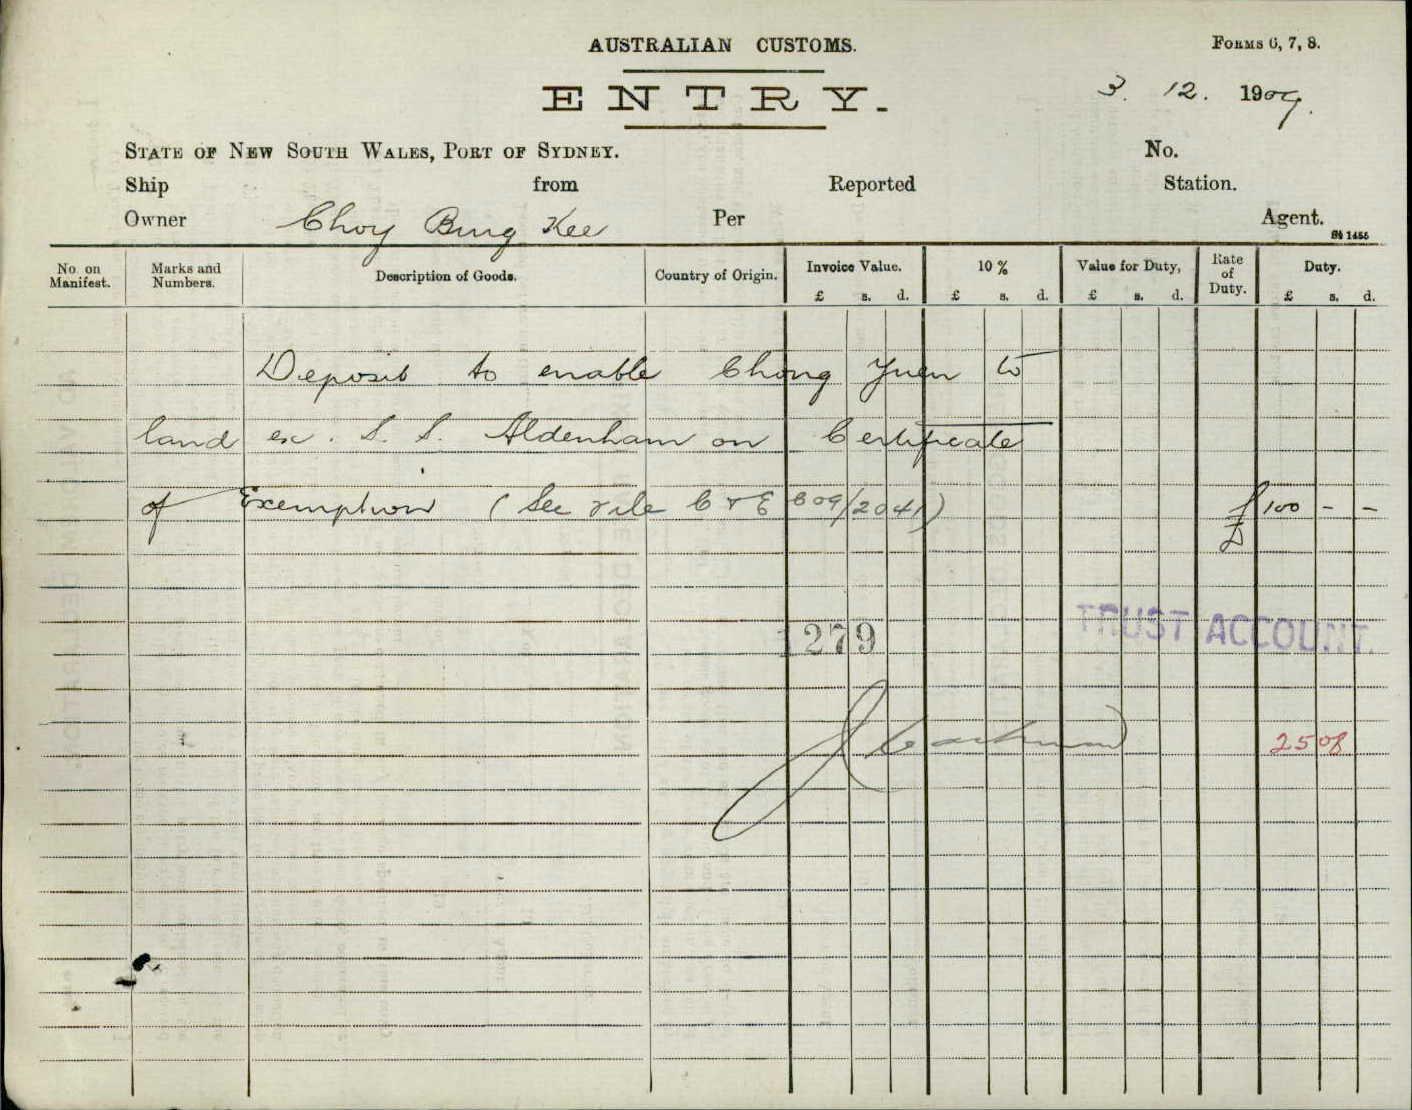 AUSTRALIAN CUSTOMS.
FORMS 6, 7, 8.
ENTRY.
3. 12. 1909.
STATE OF NEW SOUTH WALES, PORT OF SYDNEY.
No.
Ship from Reported Station.
Owner Choy Bing Kee Per Agent.
St 1455
No. on Manifest. Marks and Numbers. Description of Goods. Country of Origin. Invoice Value. 10 % Value for Duty, Rate of Duty. Duty.
£ s. d. £ s. d. £ s. d. £ s. d.
Deposit to enable Chong Yuen to
land ex. S. S. Aldenham on Certificate
of Exemption (See file C & E C 09/2041) £100 - -
1279
TRUST ACCOUNT.
2508